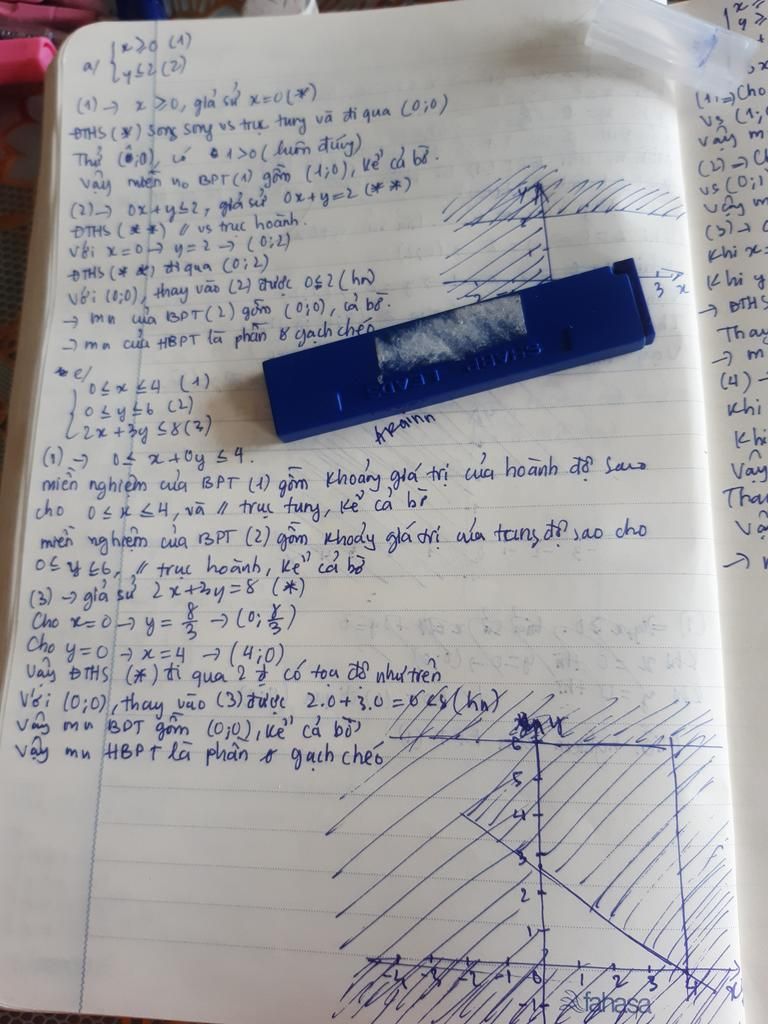 a/ { x ≥ 0 (1)
y ≤ 2 (2)
(1) → x ≥ 0, giả sử x = 0 (*)
ĐTHS (*) song song vs trục tung và đi qua (0;0)
Thử (0;0), có 1>0 (luôn đúng)
Vậy miền no BPT (1) gồm (1;0), kể cả bờ.
(2) → 0x + y ≤ 2, giả sử 0x + y = 2 (**)
ĐTHS (**) // vs trục hoành.
Với x = 0 → y = 2 → (0;2)
ĐTHS (**) đi qua (0;2)
Với (0;0), thay vào (2) được 0 ≤ 2 (hn)
→ mn của BPT (2) gồm (0;0), cả bờ.
→ mn của HBPT là phần o gạch chéo
y
3 x
SHARP LEADS
e/
{ 0 ≤ x ≤ 4 (1)
0 ≤ y ≤ 6 (2)
2x + 3y ≤ 8 (3)
(1) → 0 ≤ x + 0y ≤ 4.
miền nghiệm của BPT (1) gồm khoảng giá trị của hoành độ sao
cho 0 ≤ x ≤ 4, và // trục tung, kể cả bờ
miền nghiệm của BPT (2) gồm khoảng giá trị của tung độ sao cho
0 ≤ y ≤ 6, // trục hoành, kể cả bờ
(3) → giả sử 2x + 3y = 8 (*)
Cho x = 0 → y = 8/3 → (0; 8/3)
Cho y = 0 → x = 4 → (4;0)
Vậy ĐTHS (*) đi qua 2 đ có toạ độ như trên
Với (0;0), thay vào (3) được 2.0 + 3.0 = 0 ≤ 8 (hn)
Vậy mn BPT gồm (0;0), kể cả bờ
Vậy mn HBPT là phần o gạch chéo
y
6
5
4
3
2
1
-1 0 1 2 3 4 x
-1
fahasa
(1) → Cho
vs (1;0
Vậy m
(2) → C
vs (0;1
Vậy m
(3) →
Khi x=
Khi y
→ ĐTHS
Thay
→ m
(4) →
Khi
Khi
Vậy
Tha
Vậ